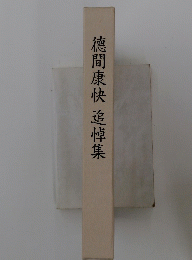 徳間康快 追悼集